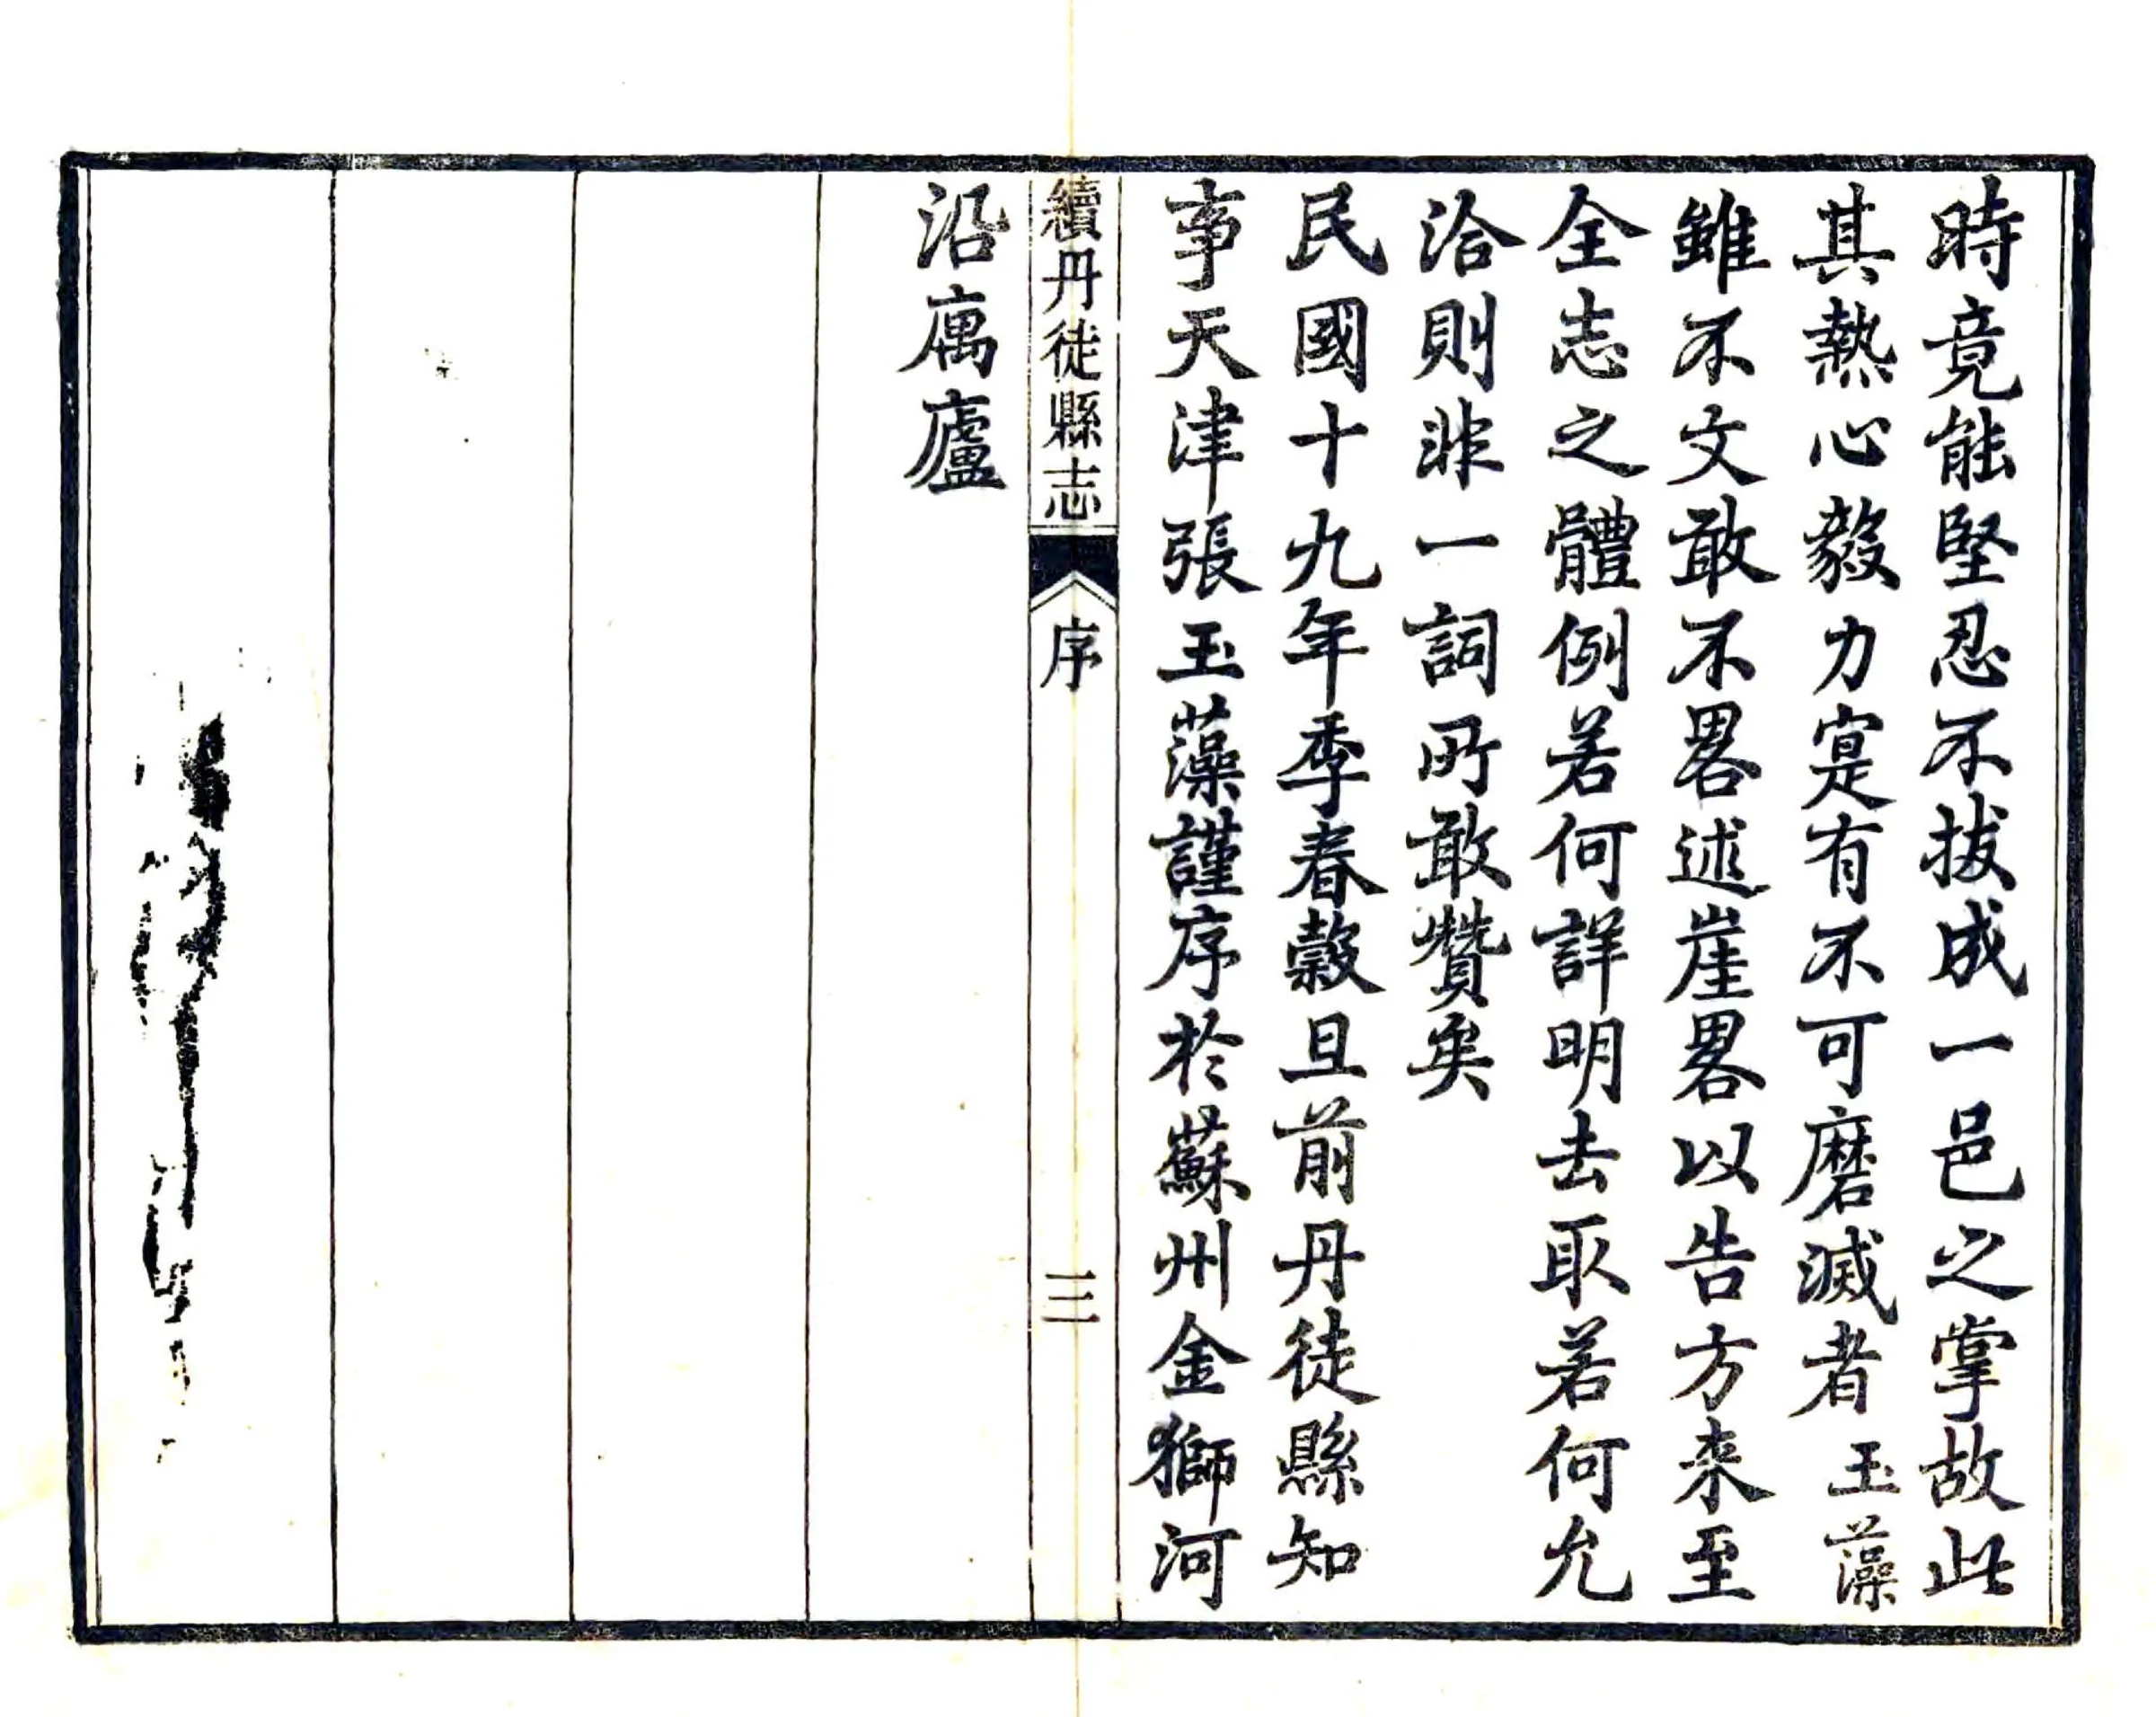 時竟能堅忍不拔成一邑之掌故此
其熱心毅力寔有不可磨滅者玉藻
雖不文敢不畧述崖畧以告方来至
全志之體例若何詳明去取若何允
洽則非一詞所敢贊矣
民國十九年季春穀旦前丹徒縣知
事天津張玉藻謹序於蘇州金獅河
續丹徒縣志
序
三
沿庽廬